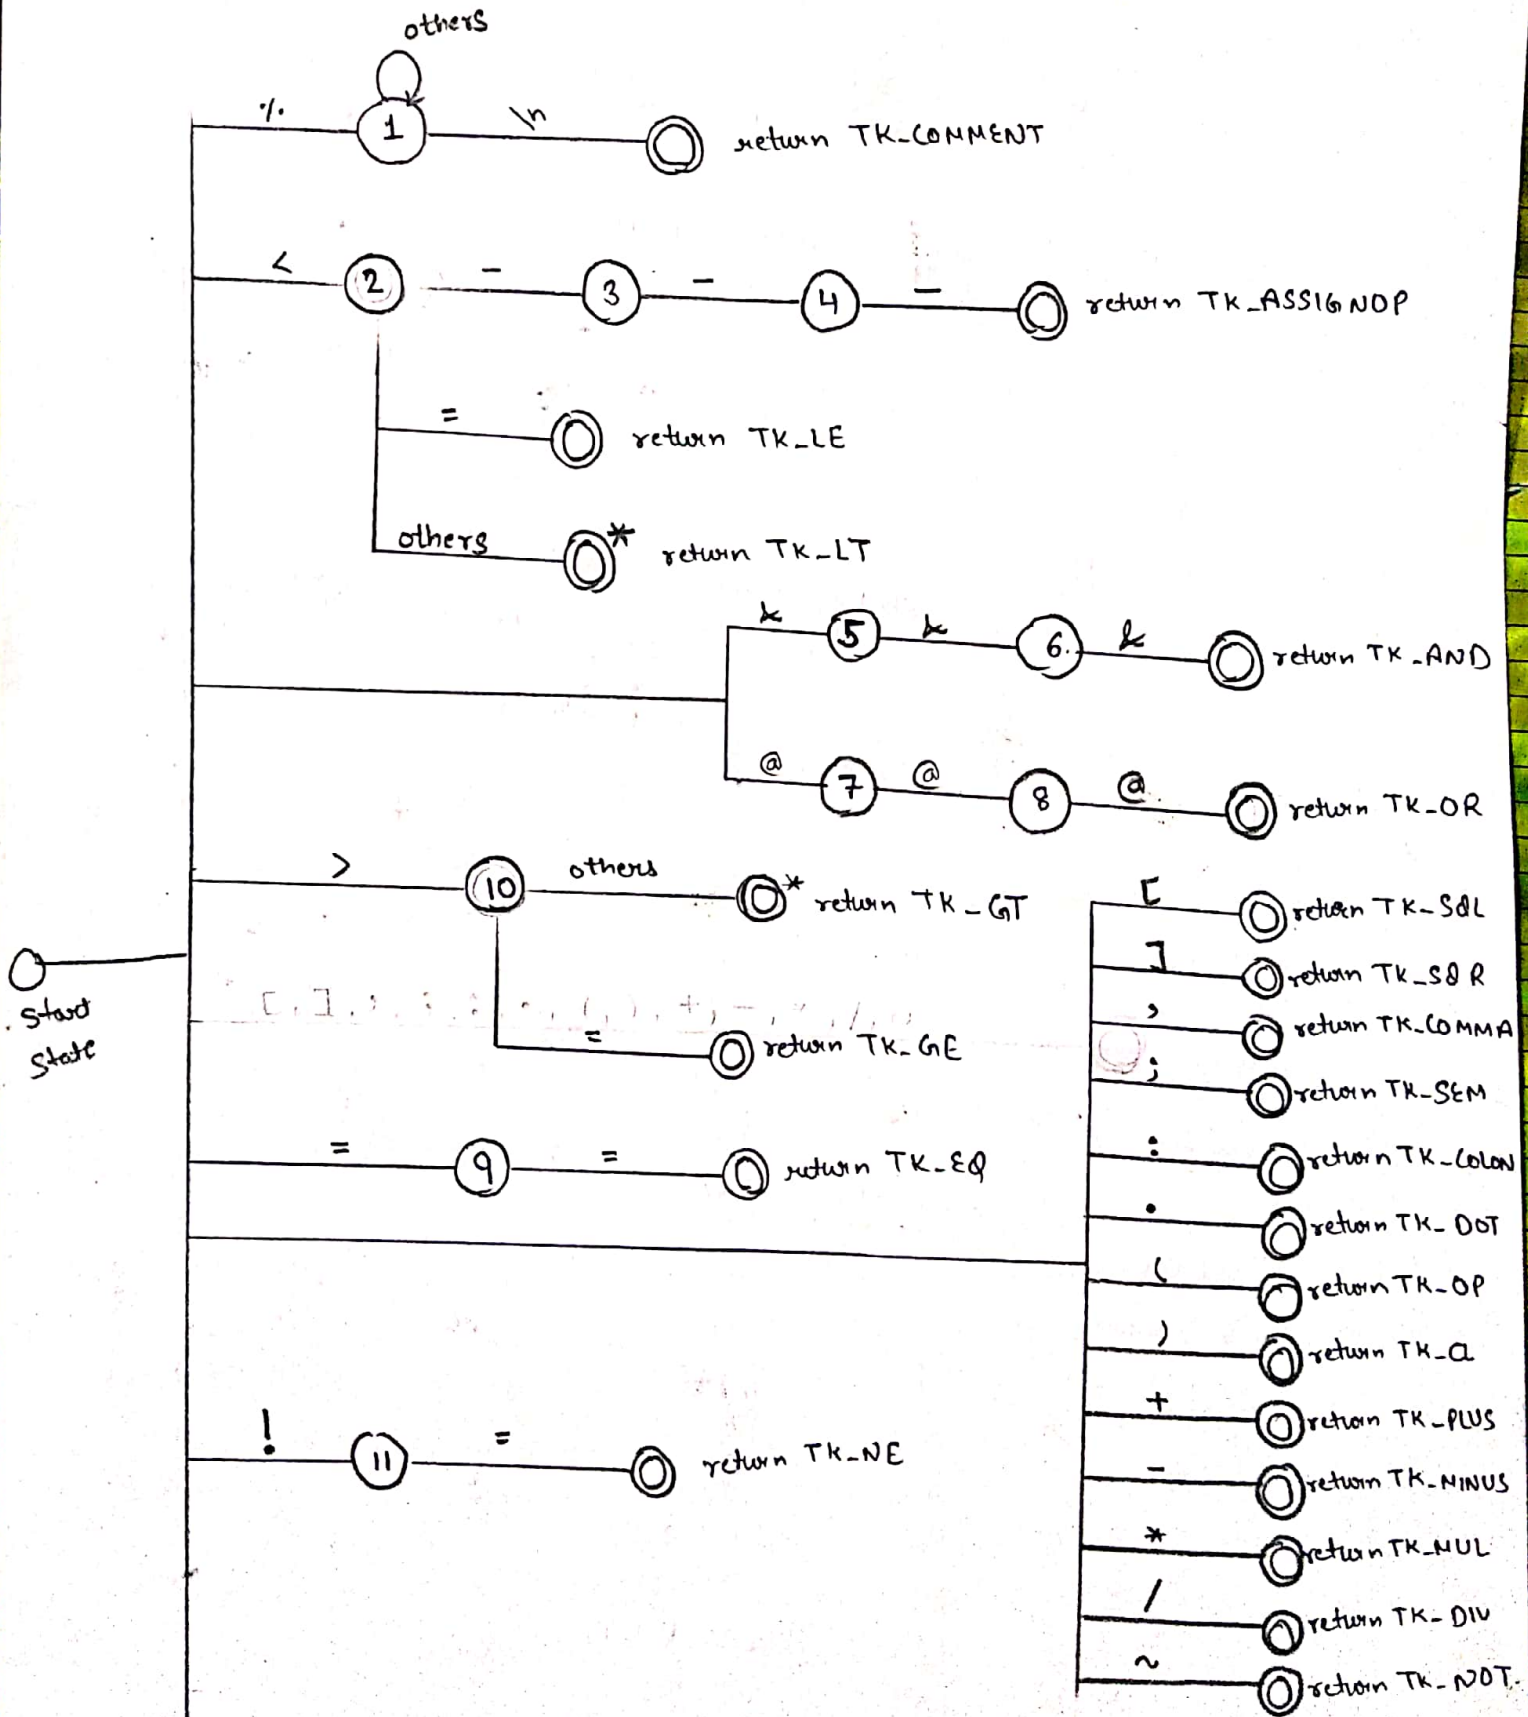 others
% 1 \n return TK_COMMENT
< 2 - 3 - 4 - return TK_ASSIGNOP
= return TK_LE
others * return TK_LT
& 5 & 6. & return TK_AND
@ 7 @ 8 @ return TK_OR
> 10 others * return TK_GT
= return TK_GE
start
state
= 9 = return TK_EQ
! 11 = return TK_NE
[ return TK_SQL
] return TK_SQR
, return TK_COMMA
; return TK_SEM
: return TK_COLON
. return TK_DOT
( return TK_OP
) return TK_CL
+ return TK_PLUS
- return TK_MINUS
* return TK_MUL
/ return TK_DIV
~ return TK_NOT.